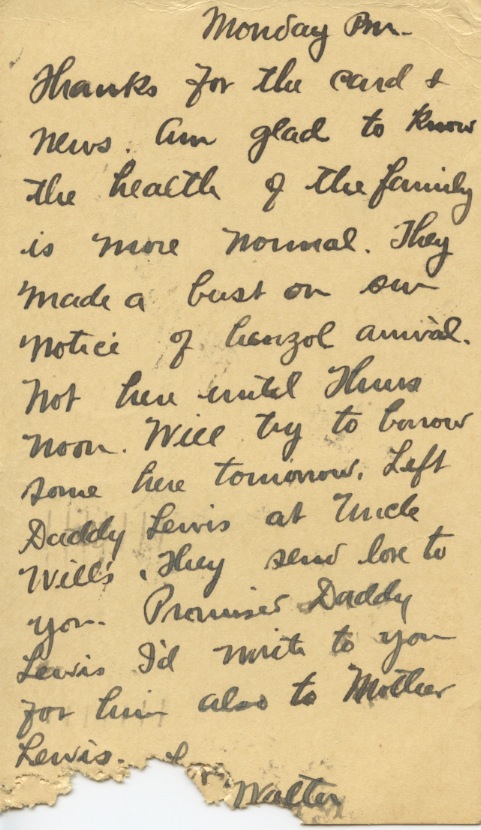 Monday Pm.
Thanks for the card &
news. Am glad to know
the health of the family
is more normal. They
made a bust on our
notice of benzol arrival.
Not here until Thurs
noon. Will try to borrow
some here tomorrow. Left
Daddy Lewis at Uncle
Will's. They send love to
you. Promised Daddy
Lewis I'd write to you
for him also to Mother
Lewis.
Walter